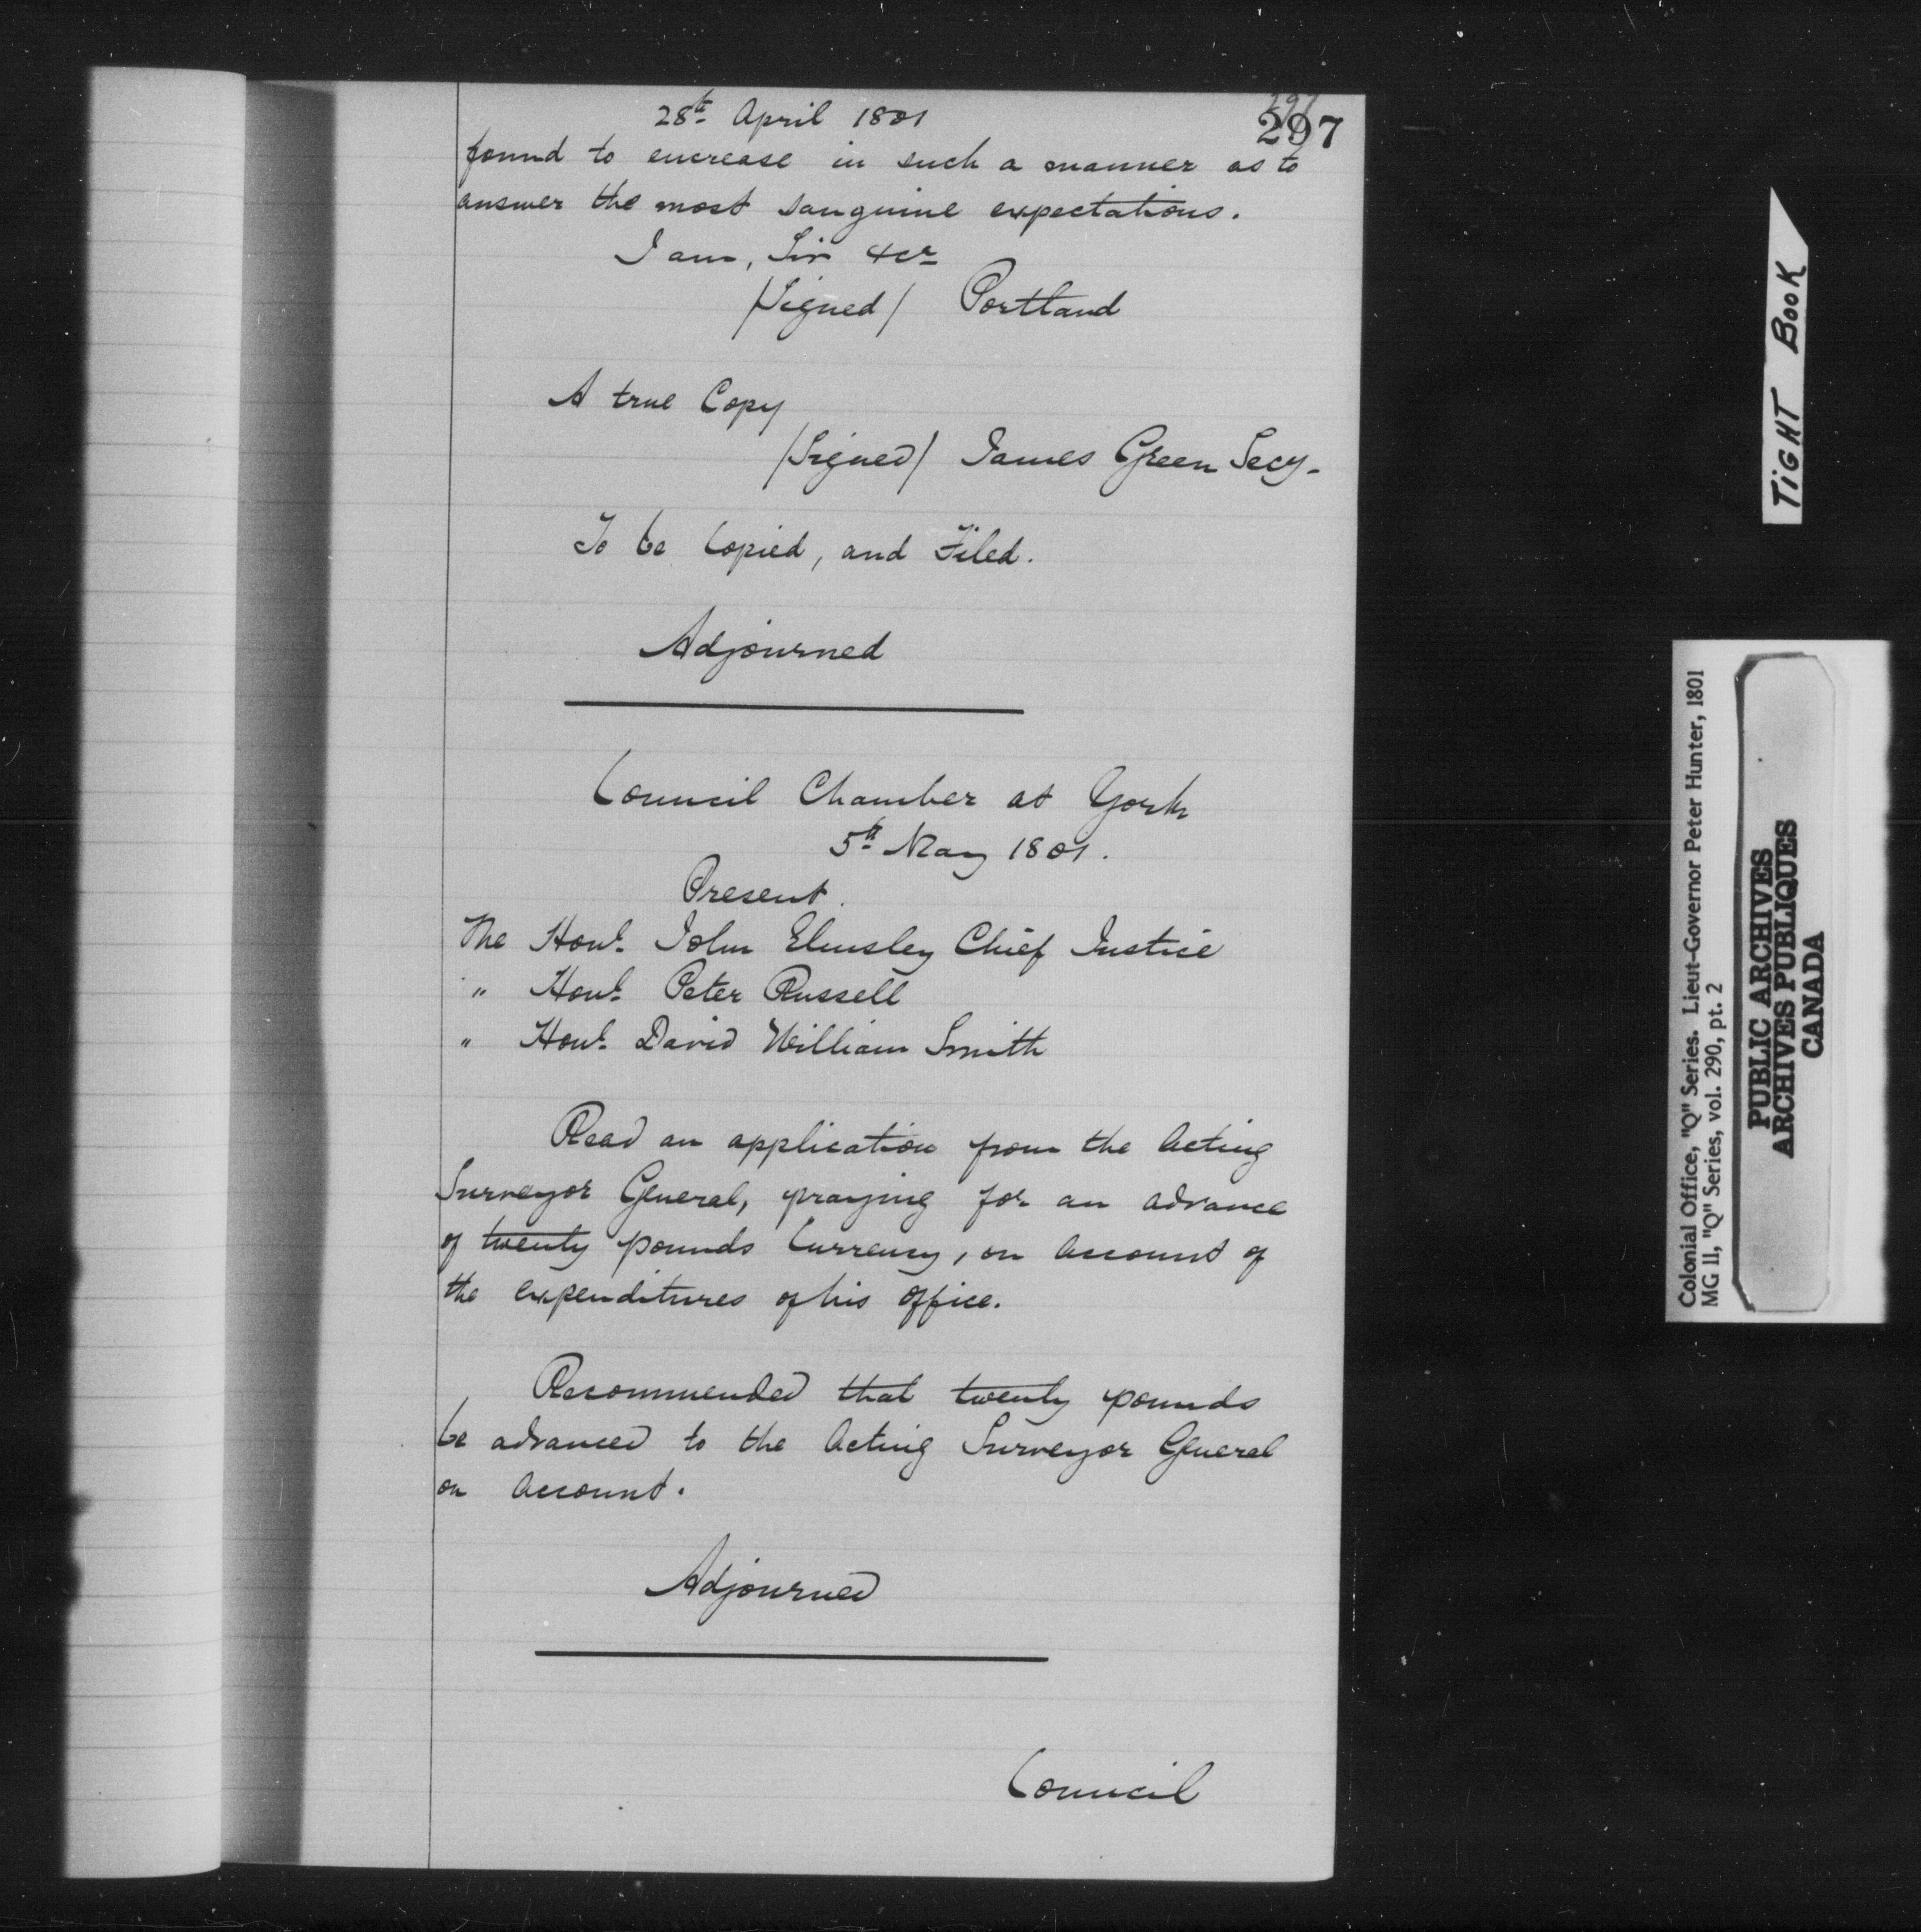 28th April 1801
297
297
found to encrease in such a manner as to
answer the most sanguine expectations.
I am, Sir &cr
/Signed/ Portland
A true Copy
/Signed/ James Green Secy.
To be Copied, and Filed.
Adjourned
Council Chamber at York
5th May 1801.
Present.
The Honl. John Elmsley Chief Justice
" Honl. Peter Russell
" Honl. David William Smith
Read an application from the Acting
Surveyor General, praying for an advance
of twenty pounds Currency, on Account of
the expenditures of his Office.
Recommended that twenty pounds
be advanced to the Acting Surveyor General
on Account.
Adjourned
Council
TIGHT BOOK
Colonial Office, "Q" Series. Lieut-Governor Peter Hunter, 1801
MG 11, "Q" Series, vol. 290, pt. 2
PUBLIC ARCHIVES
ARCHIVES PUBLIQUES
CANADA